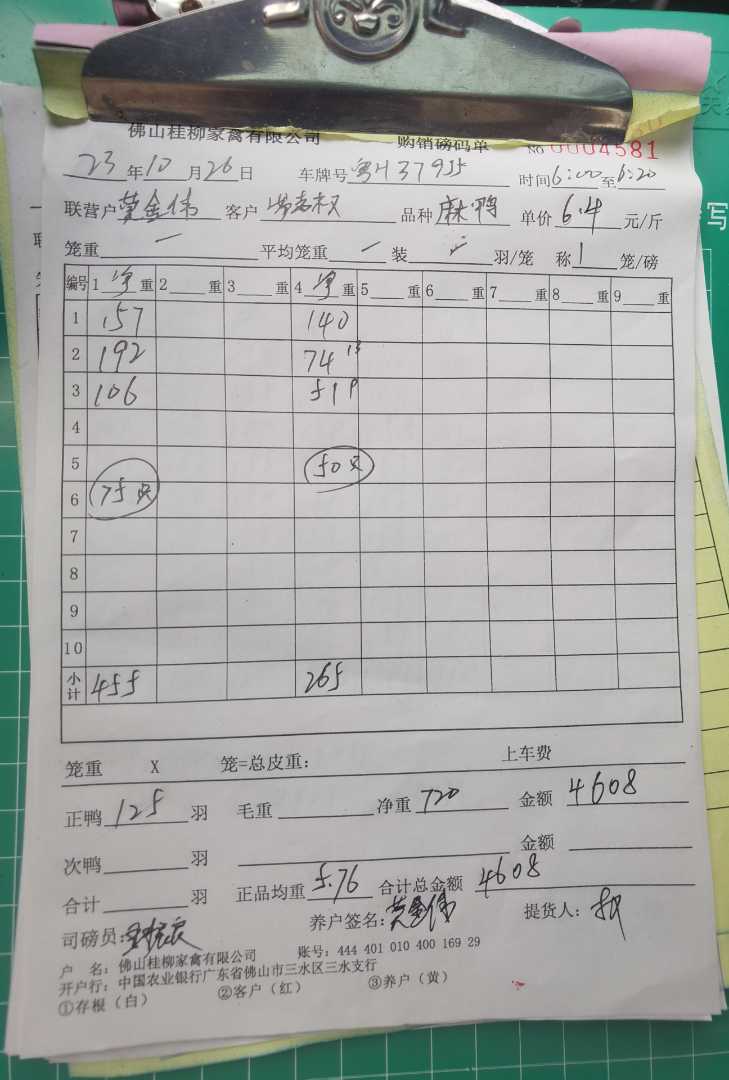 佛山桂柳家禽有限公司 购销磅码单 NO 0004581
23年10月26日 车牌号粤H37955 时间6:00至6:20
联营户莫金伟 客户 品种麻鸭 单价6.4元/斤
笼重 一 平均笼重 一 装 羽/笼 称1笼/磅
编号 1净重 2重 3重 4净重 5重 6重 7重 8重 9重
1 157 140
2 192 74 13
3 106 51 P
4
5 50只
6 75只
7
8
9
10
小计 455 265
笼重 X 笼=总皮重: 上车费
正鸭125羽 毛重 净重720 金额4608
次鸭 羽 金额
合计 羽 正品均重5.76 合计总金额4608
司磅员: 养户签名:莫金伟 提货人:
户 名:佛山桂柳家禽有限公司 账号:444 401 010 400 169 29
开户行:中国农业银行广东省佛山市三水区三水支行
①存根(白) ②客户(红) ③养户(黄)
写